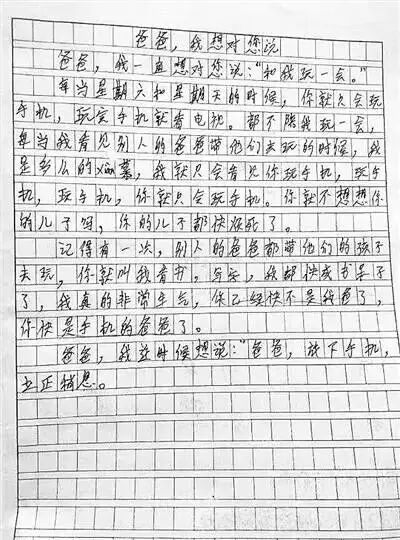 爸爸，我想对您说
爸爸，我一直想对您说：“和我玩一会。”
每当星期六和星期天的时候，你就只会玩
手机，玩完手机就看电视。都不陪我玩一会，
每当我看见别人的爸爸带他们去玩的时候，我
是多么的xian慕，我就只会看见你玩手机，玩手
机，玩手机，你就只会玩手机。你就不想想你
的儿子吗，你的儿子都快没死了。
记得有一次，别人的爸爸都带他们的孩子
去玩，你就叫我看书，写字，我都快成书呆子
了，我真的非常生气，你已经快不是我爸了，
你快是手机的爸爸了。
爸爸，我这时候想说：“爸爸，放下手机，
息。